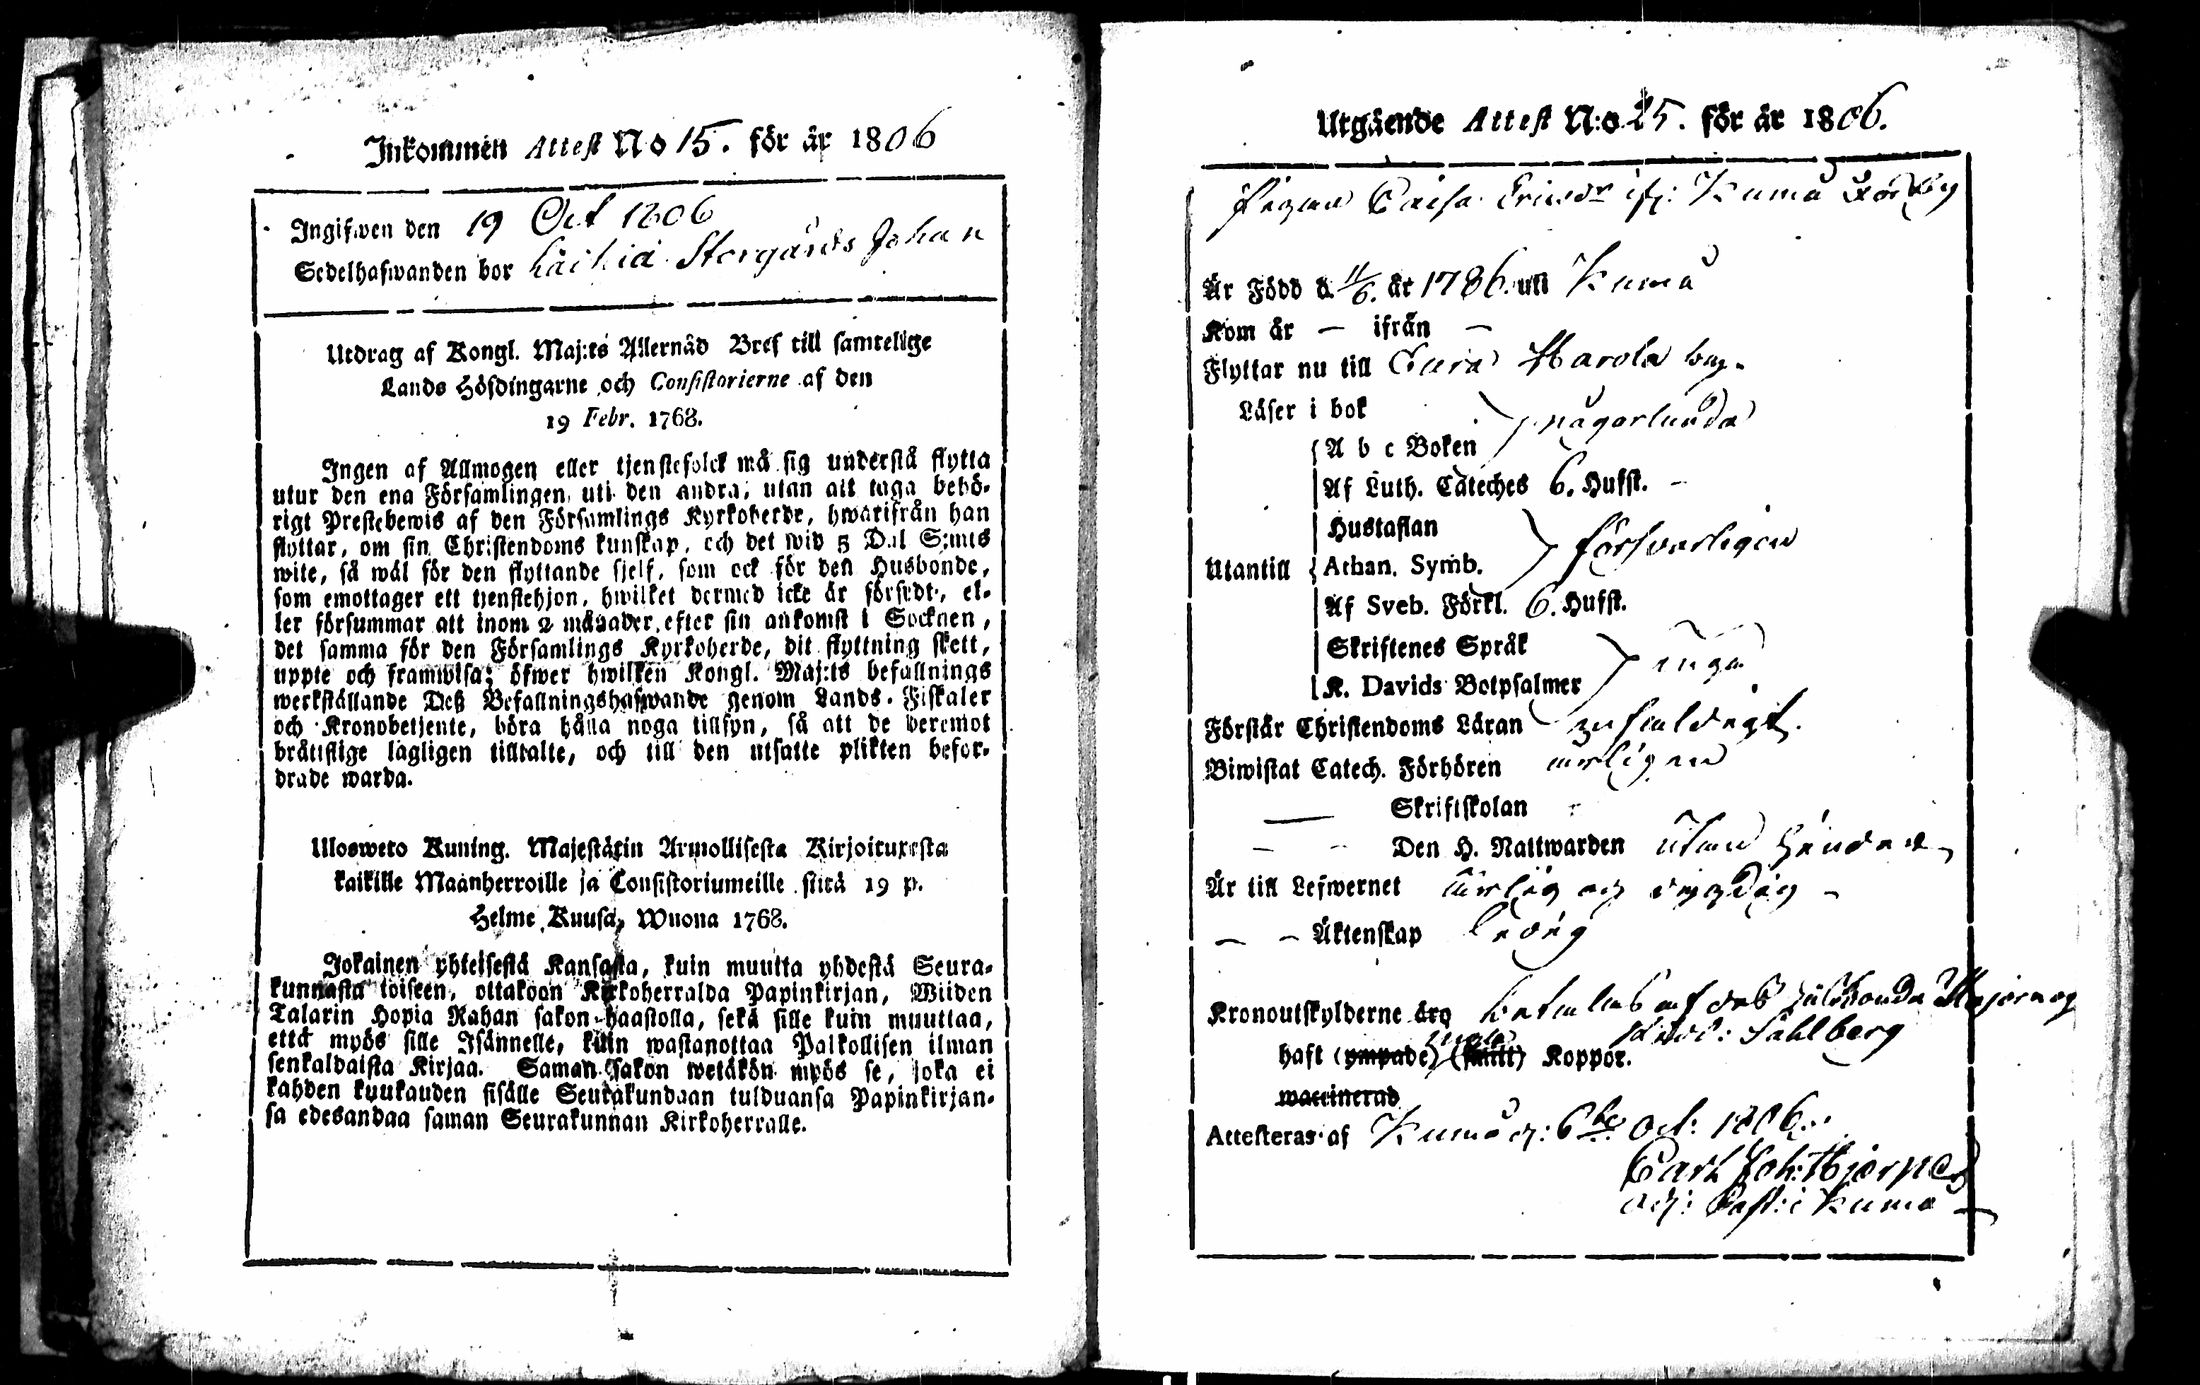 Inkommen Attest No 15. för år 1806
Ingifwen den 19 Oct 1806
Sedelhafwanden bor Storgårds Johan
Utdrag af Kongl. Maj:ts Allernåd Bref till samtelige
Lands Höfdingarne och Consistorierne af den
19 Febr. 1768.
Ingen af Allmogen eller tjenstefolck må sig understå flytta
utur den ena Församlingen uti den andra, utan att taga behö-
rigt Prestebewis af den Församlings Kyrkoherde, hwarifrån han
flyttar, om sin Christendoms kunskap, och det wid 5 Dal S:mts
wite, så wäl för den flyttande sjelf, som ock för den Husbonde,
som emottager ett tjenstehjon, hwilket dermed icke är försedt, el-
ler försummar att inom 2 månader, efter sin ankomst i Socknen,
det samma för den Församlings Kyrkoherde, dit flyttning skett,
uppte och framwisa; öfwer hwilken Kongl. Maj:ts befallnings
werkställande Deß Befallningshafwande genom Lands-Fiskaler
och Kronobetjente, böra hålla noga tillsyn, så att de deremot
bråttslige lagligen tilltalte, och till den utsatte plikten befor-
drade warda.
Ulosweto Kuning. Majestätin Armollisesta Kirjoituxesta
kaikille Maanherroille ja Consistoriumeille siitä 19 p.
Helme Kuusa, Wuona 1768.
Jokainen yhteisestä Kansasta, kuin muutta yhdestä Seura-
kunnasta toiseen, ottakoon Kirkoherralda Papinkirjan, Wiiden
Talarin Hopia Rahan sakon haastolla, sekä sille kuin muuttaa,
että myös sille Isännelle, kuin wastanottaa Palkollisen ilman
senkaldaista Kirjaa. Saman sakon wetäkön myös se, joka ei
kahden kuukauden sisälle Seurakundaan tulduansa Papinkirjan-
sa edesandaa saman Seurakunnan Kirkoherralle.
Utgående Attest N:o 25. för år 1806.
Pigan Caisa Ericsdr ifr: Kumå
Är Född d. 11/6. år 1786. uti Kumå
Kom år — ifrån —
Flyttar nu till Eura Harola by.
Läser i bok
A b c Boken någorlunda
Af Luth. Cateches 6. Hufst. -
Hustaflan
Utantill Athan. Symb. försvarligen
Af Sveb. Förkl. 6. Hufst.
Skriftenes Språk
K. Davids Botpsalmer inga
Förstår Christendoms Läran enfaldigt.
Biwistat Catech. Förhören årligen
— Skriftskolan
- - Den H. Nattwarden utan hinder
Är till Lefwernet ärlig och dygdig -
- - Äktenskap ledig
Kronoutskylderne äro betalas af dess husbonde
Sahlberg
haft (ympade) (smitt) Koppor.
waccinerad
Attesteras af Kumå d: 6te Oct: 1806.
Carl Joh: Hjerpe
adj: Past: i Kumo